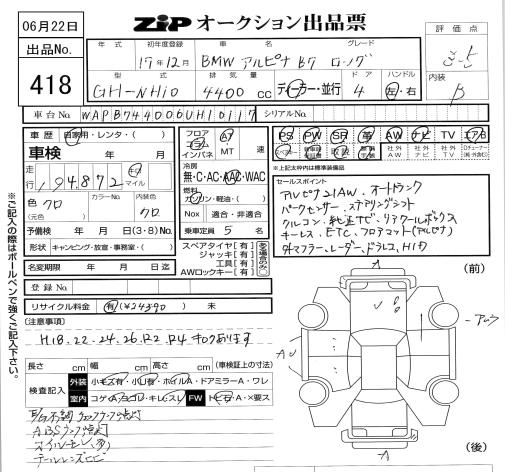 06月22日
ZiP オークション出品票
出品No.
418
年式 初年度登録 車名 グレード
17年12月 BMW アルピナ B7 ロング
型式 排気量 ディーラー・並行 ドア ハンドル
GH-NH10 4400 cc 4 左・右
評価点
内装
B
車台No. WAPB744006UH10117 シリアルNo.
車歴 自家用・レンタ・( )
車検 年 月
走行 194,872 キロ マイル
色 クロ (元色) カラーNo. 内装色 クロ
予備検 年 月 日(3・8)No.
形状 キャンピング・放宣・事務室・( )
名変期限 年 月 日迄
登録No.
リサイクル料金 有(¥24390) 未
フロア コラム インパネ AT MT 速
冷房
無・C・AC・AAC・WAC
燃料
ガソリン・軽油・( )
Nox 適合・非適合
乗車定員 5 名
スペアタイヤ[有]
ジャッキ[有]
工具[有]
AWロックキー[有]
PS PW SR 革 AW ナビ TV エアB
社外AW 社外ナビ 社外TV
※上記太枠内は標準装備品
セールスポイント
アルピナ21AW、オートトランク
パークセンサー、ステアリングシフト
クルコン、純正ナビ、リアクールボックス
キーレス、ETC、フロアマット(アルピナ)
外マフラー、レーダー、ドラレコ、HID
[注意事項]
H18.22.24.26.R2.R4 キロクあります
長さ cm 幅 cm 高さ cm (車検証上の寸法)
検査記入 外装 小キズ有・小凹有・ホイルA・ドアミラーA・ワレ
室内 コゲA・キレスレ FW トビ石・A・×要ス
ABSランプ点灯
(前)
(後)
A
A
A
※ご記入の際はボールペンで強くご記入下さい。